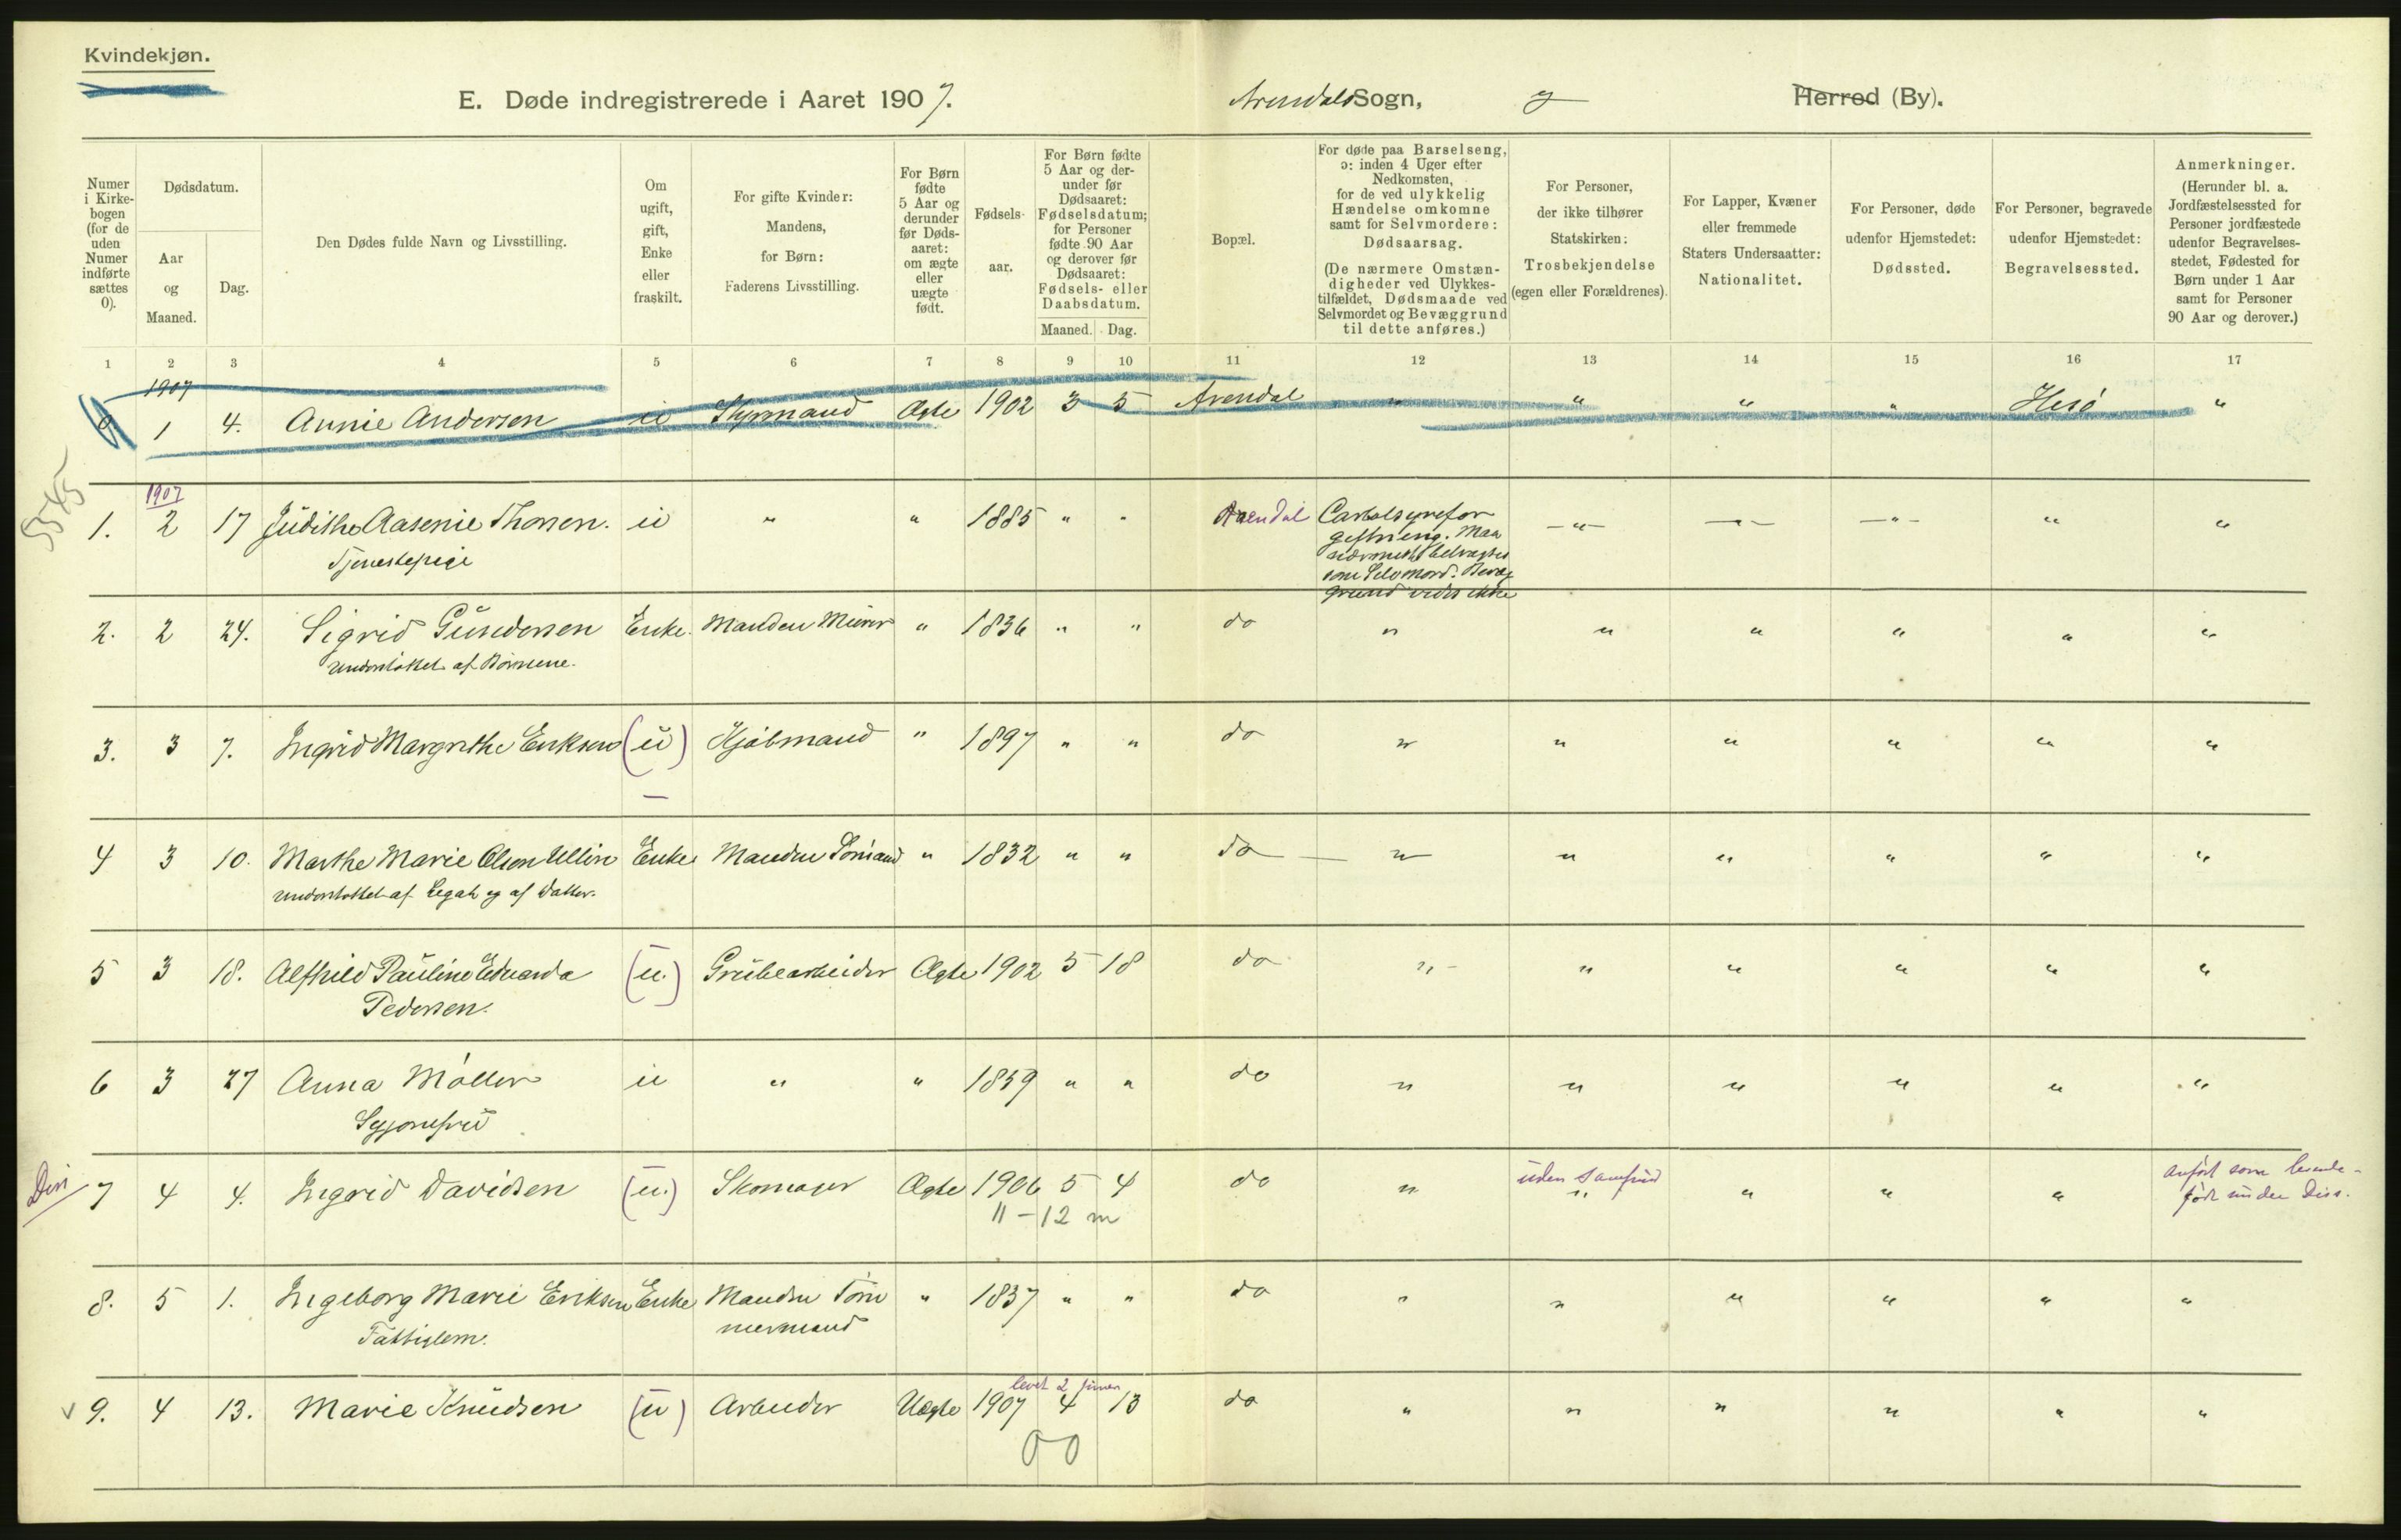 Kvindekjøn.
E. Døde indregistrerede i Aaret 1907. Arendals Sogn, og Herred (By).
Numer i Kirke-bogen (for de uden Numer indførte sættes 0).
Dødsdatum.
Aar og Maaned.
Dag.
Den Dødes fulde Navn og Livsstilling.
Om ugift, gift, Enke eller fraskilt.
For gifte Kvinder: Mandens, for Børn: Faderens Livsstilling.
For Børn fødte 5 Aar og derunder før Døds-aaret: om ægte eller uægte født.
Fødsels-aar.
For Børn fødte 5 Aar og der-under før Dødsaaret: Fødselsdatum; for Personer fødte 90 Aar og derover før Dødsaaret: Fødsels- eller Daabsdatum.
Maaned. Dag.
Bopæl.
For døde paa Barselseng, ɔ: inden 4 Uger efter Nedkomsten, for de ved ulykkelig Hændelse omkomne samt for Selvmordere: Dødsaarsag.
(De nærmere Omstæn-digheder ved Ulykkes-tilfældet, Dødsmaade ved Selvmordet og Bevæggrund til dette anføres.)
For Personer, der ikke tilhører Statskirken: Trosbekjendelse (egen eller Forældrenes).
For Lapper, Kvæner eller fremmede Staters Undersaatter: Nationalitet.
For Personer, døde udenfor Hjemstedet: Dødssted.
For Personer, begravede udenfor Hjemstedet: Begravelsessted.
Anmerkninger. (Herunder bl. a. Jordfæstelsessted for Personer jordfæstede udenfor Begravelses-stedet, Fødested for Børn under 1 Aar samt for Personer 90 Aar og derover.)
1 2 3 4 5 6 7 8 9 10 11 12 13 14 15 16 17
1907
0 1 4. Annie Andersen u Styrmand Ægte 1902 3 5 Arendal " " " " Hisö "
5545
1907
1. 2 17 Judithe Aasenie Thorsen. u " " 1885 " " Arendal Carbolsyrefor
Tjenestepige
giftning. Maa
nærmest betragtes
som Selvmord. Bevæg
grund vides ikke
— " — — " — — " — " "
2. 2 24. Sigrid Gundersen Enke. Manden Murer " 1836 " " do " " " " " "
understöttet af Börnene.
3. 3 7. Ingrid Margrethe Eriksen (u) Kjøbmand " 1897 " " do " " " " " "
4 3 10. Marthe Marie Olsen Ullin Enke Manden Sömand " 1832 " " do — " " " " " "
understöttet af Legat og af Datter.
5 3 18. Alfhild Pauline Edvarda (u.) Grubearbeider Ægte 1902 5 18 do " " " " " "
Pedersen.
6 3 27 Anna Møller u " " 1859 " " do " " " " " "
Syjomfru
Diss 7 4 4. Ingrid Davidsen (u.) Skomager Ægte 1906 5 4 do " uden samfund " " " " anført som levende-
11 – 12 m
født under Diss.
8. 5 1. Ingeborg Marie Eriksen Enke Manden Töm " 1837 " " do " " " " " "
Fattiglem.
mermand
levet 2 timer
v 9. 4 13. Marie Knudsen (u) Arbeider Uægte 1907 4 13 do " " " " " "
00